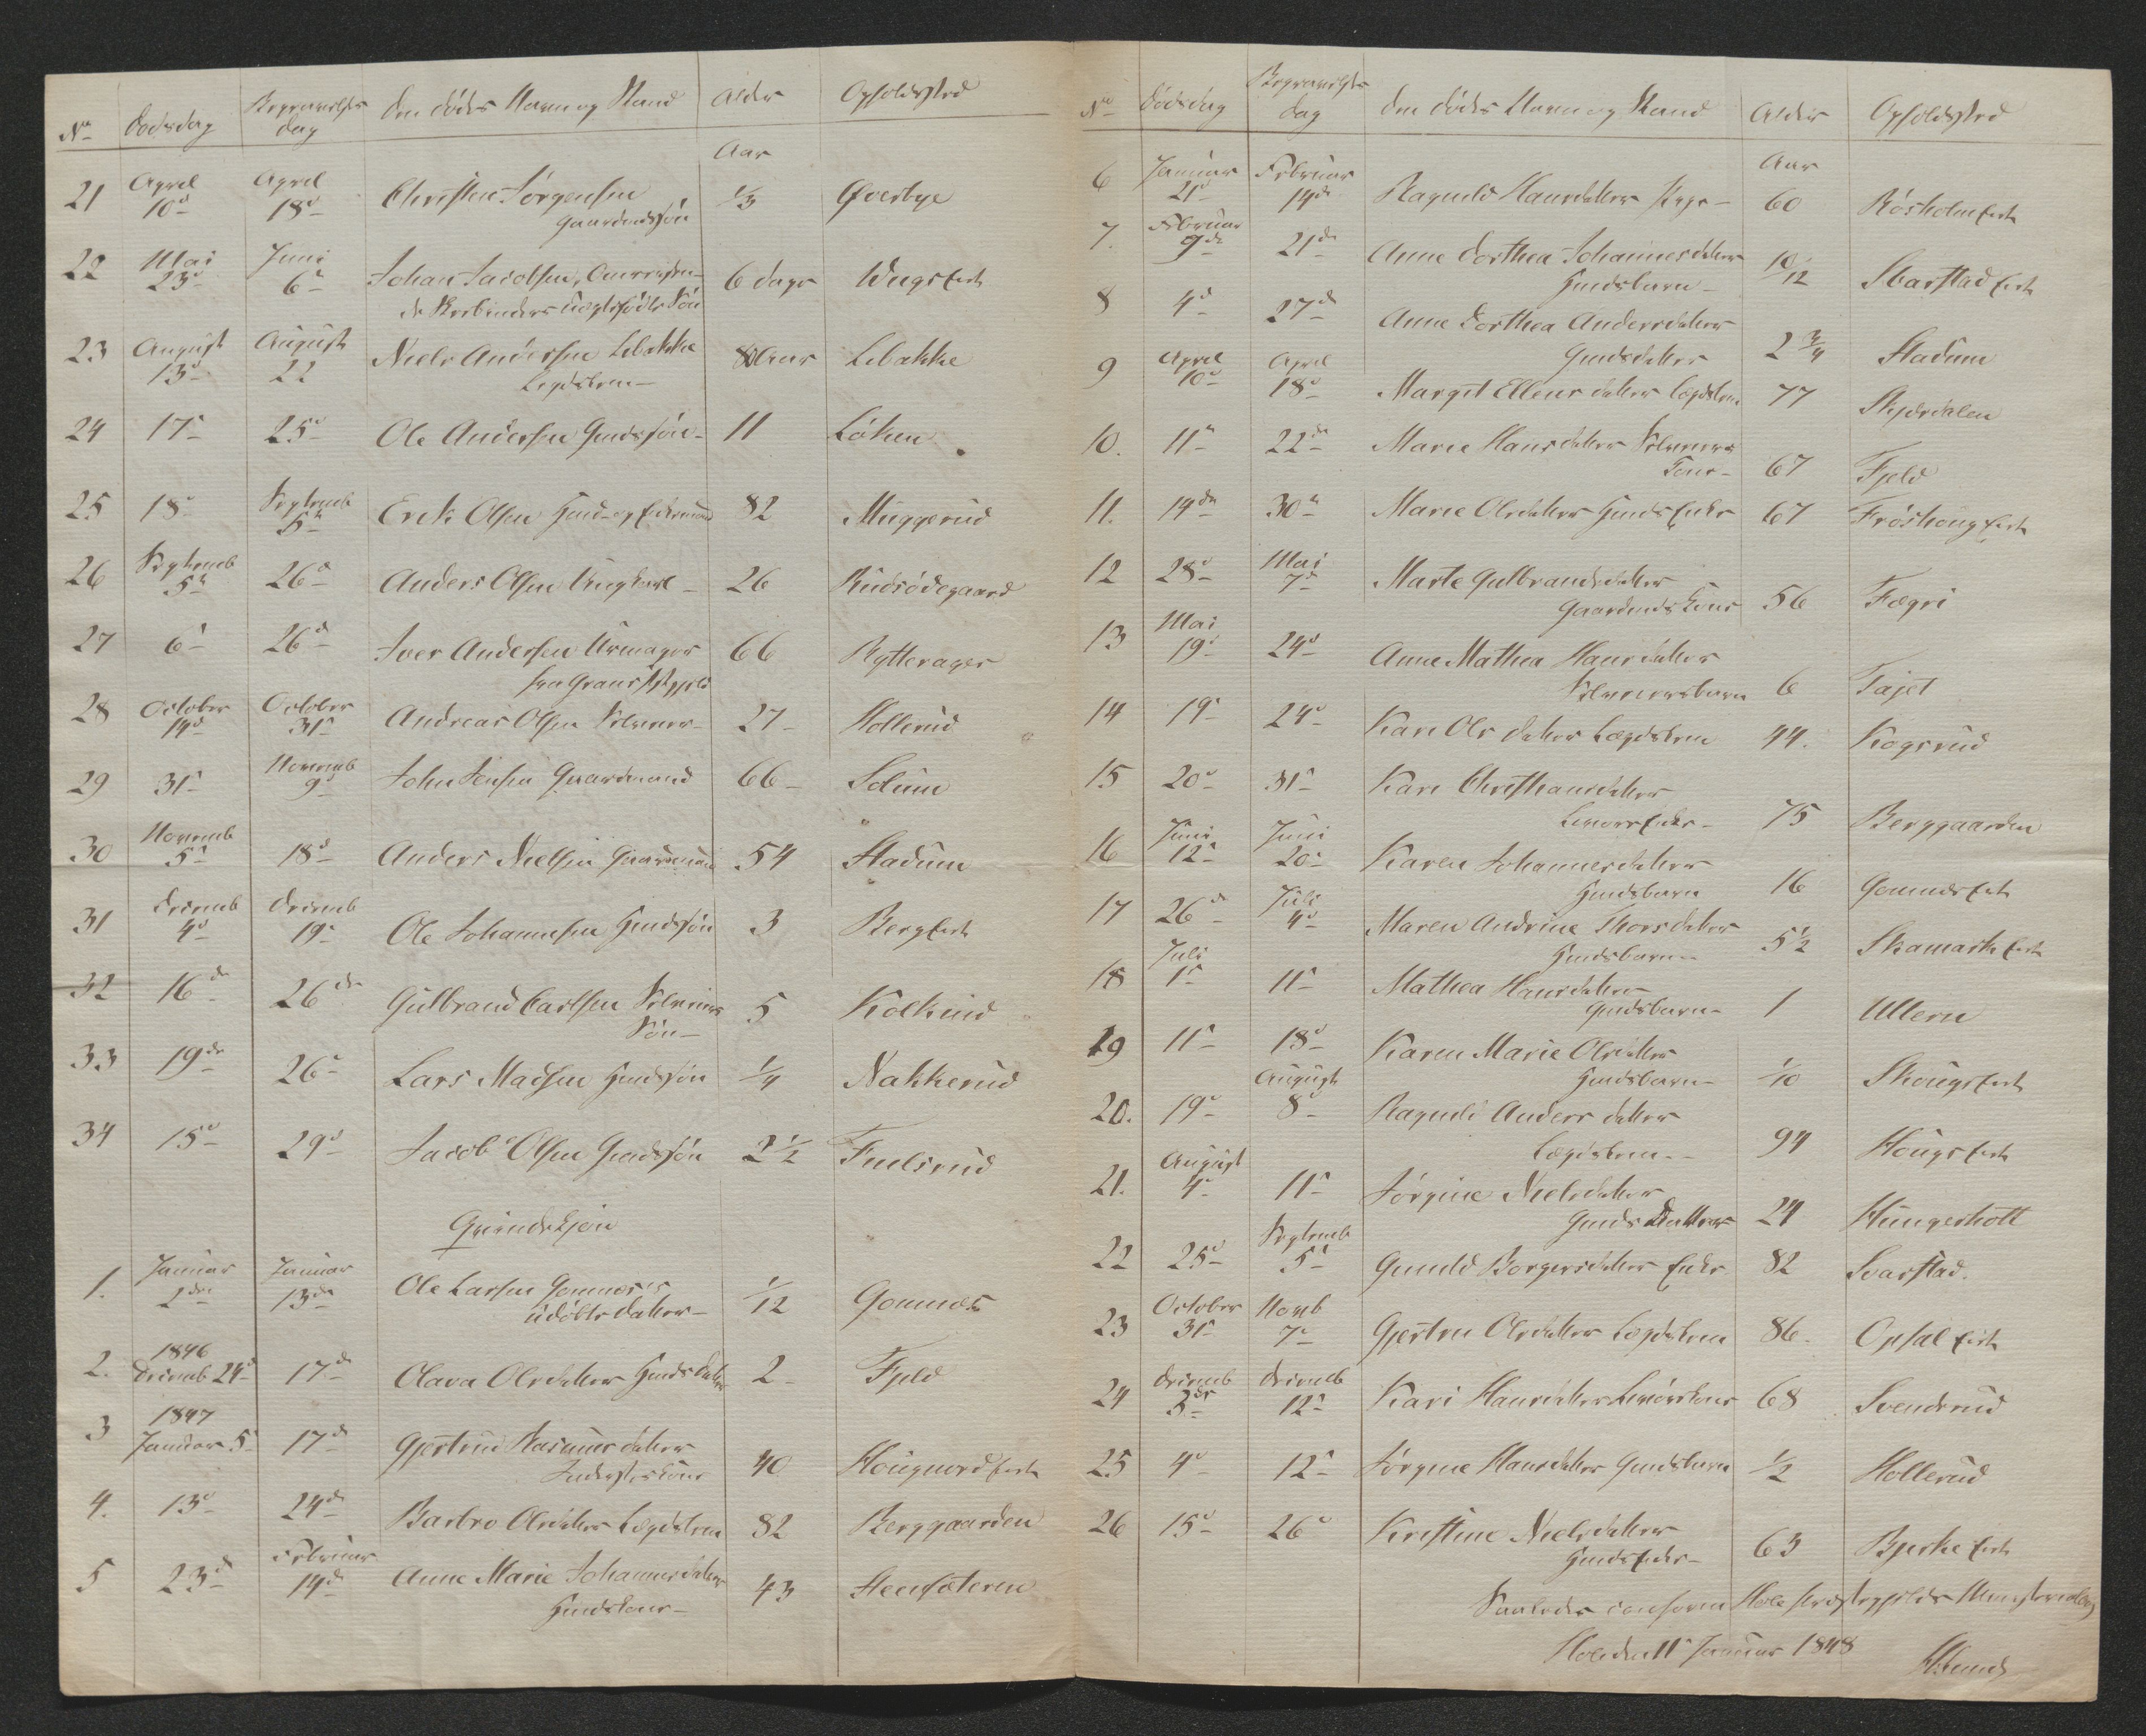 No Dødsdag Begravelses Dag Den Dødes Navn og Stand Alder Opholdsted
Aar
21 April 10d April 18d Christen Jørgensen Gaardmandssøn 1/3 Øverbye
22 Mai 23d Juni 6te Johan Jacobsen, Omreisen-
de Skrebinders uægtefødte Søn 6 Dage Wegs Eiet
23 August 13d August 22 Niels Andersen Lebakke
Legdslem 80 Aar Lebakke
24 17d 25d Ole Andersen Huusmdssøn 11 Løken
25 18d Septemb 5te Erik Olsen Huusmd og Enkemand 82 Muggerud
26 Septemb 5te 26d Anders Olsen Ungkarl 26 Rudsødegaard
27 6te 26d Iver Andersen Urmager
fra Grans Præstegjeld 66 Rytterager
28 October 14d October 31te Andreas Olsen Selveier 27 Hollerud
29 31te Novemb 9d John Jensen Gaardmand 66 Solum
30 Novemb 5te 18d Anders Nielsen Gaardmand 54 Stadum
31 Decemb 4d Decemb 19d Ole Johannesen Huusmdssøn 3 Berg Eiet
32 16de 26de Gulbrand Carlsen Selveiers
Søn 5 Kolkind
33 19de 26d Lars Madsen Huusmdssøn 1/4 Nakkerud
34 15d 29d Jacob Olsen Huusmdssøn 2 1/2 Fuelsrud
Qvindekjøn
1. Januar 2den Januar 13de Ole Larsen Gomnæs's
udøbte Datter 1/12 Gomnæs
2. 1846 Decemb 24d 17de Olava Olsdatter Huusmds Datter 2 Fjeld
3 1847 Januar 5 17de Gjertrud Rasmusdatter
Inderstekone 40 Hougnord Eiet
4. 13d 24de Barbro Olsdatter Lægdslem 82 Berggaarden
5 23d Februar 14de Anne Marie Johannesdatter
Huusmdskone 43 Stensæteren
No Dødsdag Begravelses Dag Den Dødes Navn og Stand Alder Opholdsted
Aar
6 Januar 21d Februar 14de Ragnild Hansdatter Pige 60 Røsholm Eiet
7. Februar 9de 21de Anne Dorthea Johannesdatter
Huusmdsbarn 10/12 Sbarstad Eiet
8 4d 27de Anne Dorthea Andersdatter
Huusmdsdatter 2 3/4 Stadum
9 April 10d April 18d Margit Ellensdatter Lægdslem 77 Skjærdalen
10. 11te 22de Marie Hansdatter Selveiers
Kone 67 Fjeld
11. 14de 30te Marie Olsdatter Huusmds Enke 67 Frøshoug Eiet
12 28d Mai 7de Marte Gulbrandsdatter
Gaardmds Kone 56 Fægri
13 Mai 19d 24d Anne Mathea Hansdatter
Selveiersbarn 6 Fajet
14 19d 24d Kari Olsdatter Lægdslem 44. Kogsrud
15 20d 31te Kari Christhansdatter
Enke 75 Berggaarden
16 Juni 12te Juni 20d Karen Johannesdatter
Huusmdsbarn 16 Gomnæs Eiet
17 26de Juli 4d Maren Andrine Thorsdatter
Huusmdsbarn 5 1/2 Skamark Eiet
18 Juli 1te 11te Mathea Hansdatter
Huusmdsbarn 1 Ullern
19 11te 18d Karen Marie Olsdatter
Huusmdsbarn 1/10 Skougs Eiet
20. 19d August 8d Ragnild Andersdatter
Lægdslem 94 Hougs Eiet
21. August 4d 11te Jørgine Nielsdatter
Huusmds Datter 24 Hungerholt
22 25d Septemb 5te Gunild Borgersdatter Enke 82 Svarstad.
23 October 31te Novb 7d Gjertru Olsdatter Lægdslem 86. Opsal Eiet
24 Decemb 3de Decemb 12te Kari Hansdatter 68 Svendsrud
25 4d 12te Jørgine Hansdatter Huusmdsbarn 1/2 Hollerud
26 15d 26d Kirstine Nielsdatter
Huusmds Enke 63 Bjerke Eiet
Saaledes conform Hole Præstegjelds Ministerialbog
Hole den 11te Januar 1848